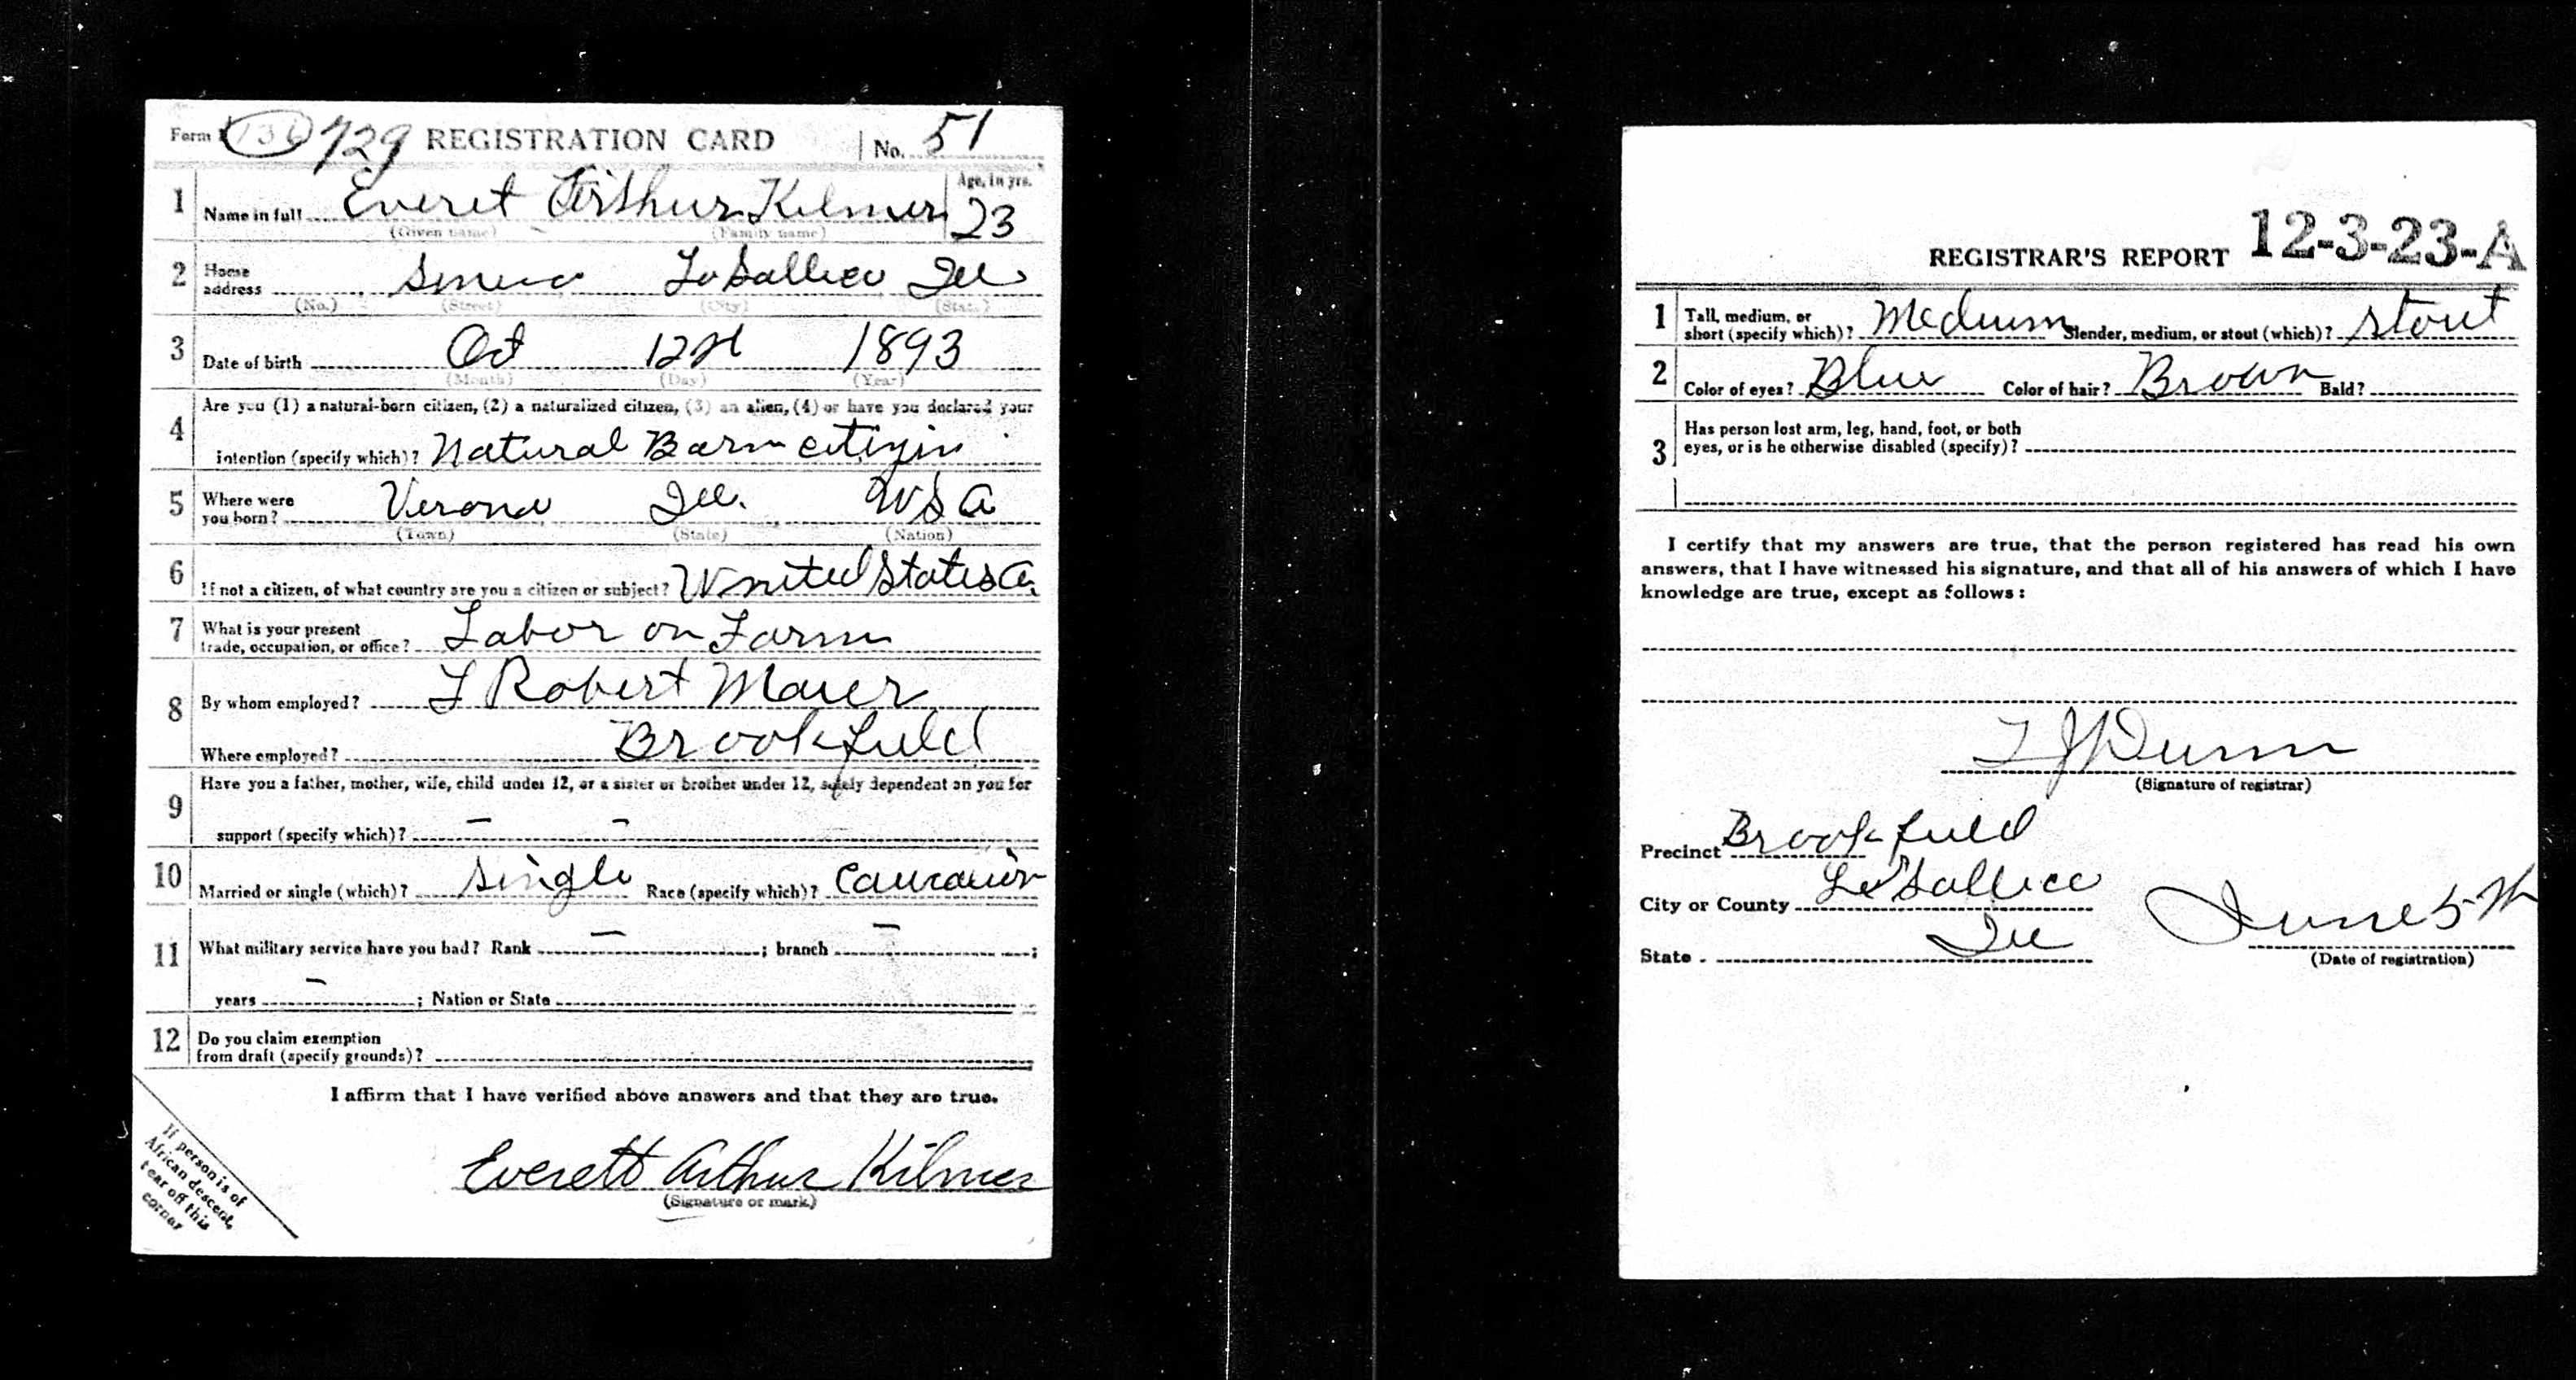 Form 1 136 729 REGISTRATION CARD No. 51
1 Name in full Everet Arthur Kilmer Age, in yrs. 23
(Given name) (Family name)
2 Home address Seneca LaSalle co Ill
(No.) (Street) (City) (State)
3 Date of birth Oct 12 1893
(Month) (Day) (Year)
4 Are you (1) a natural-born citizen, (2) a naturalized citizen, (3) an alien, (4) or have you declared your
intention (specify which)? Natural Born citizin
5 Where were you born? Verona Ill. USA
(Town) (State) (Nation)
6 If not a citizen, of what country are you a citizen or subject? United States A.
7 What is your present trade, occupation, or office? Labor on Farm
8 By whom employed? Robert Maier
Where employed? Brookfield
9 Have you a father, mother, wife, child under 12, or a sister or brother under 12, solely dependent on you for
support (specify which)? – –
10 Married or single (which)? Single Race (specify which)? Caucasion
11 What military service have you had? Rank – ; branch – ;
years – ; Nation or State
12 Do you claim exemption
from draft (specify grounds)?
I affirm that I have verified above answers and that they are true.
Everett Arthur Kilmer
(Signature or mark)
If person is of
African descent,
tear off this
corner
REGISTRAR'S REPORT 12-3-23-A
1 Tall, medium, or
short (specify which)? Medium Slender, medium, or stout (which)? Stout
2 Color of eyes? Blue Color of hair? Brown Bald?
3 Has person lost arm, leg, hand, foot, or both
eyes, or is he otherwise disabled (specify)?
I certify that my answers are true, that the person registered has read his own
answers, that I have witnessed his signature, and that all of his answers of which I have
knowledge are true, except as follows:
T J Dunn
(Signature of registrar)
Precinct Brookfield
City or County LaSalle co
State Ill June 5th
(Date of registration)